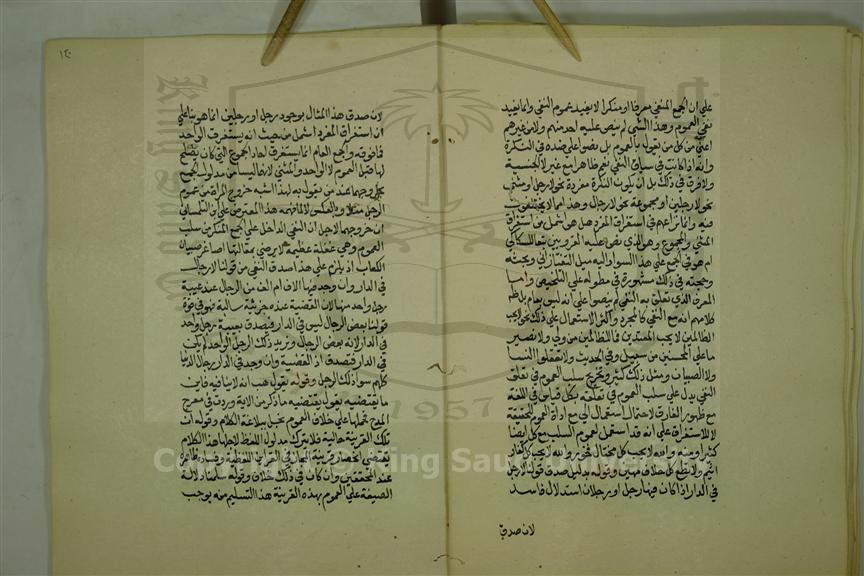 على ان الجمع المنفي معرفا او منكرا لا يفيد عموم النفي وانما يفيد
نفي العموم وهذا الشي لم ينص عليه احد منهم ولا من غيرهم
اعني من كل من يقول بالعموم بل نصوا على ضده في النكرة
وانه اذا كانت في سياق النفي نعم ظاهرا مع غير لا الجنسية
ولا فرق في ذلك بل ان يكون النكرة مفردة نحو لا رجل او مثنى
نحو لا رجلين او مجموعة نحو لا رجال وهذا مما لا يختلفون
فيه وانما نزاعهم في استغراق المفرد هل هو اشمل من استغراق
المثنى والمجموع وهو الذي نص عليه القزويني تبعا للسكاكي
ام هو في الجمع على هذا السوا واليه ميل التفتازاني وبحثه
وحجته في ذلك مشهورة في مطوله على التلخيص واما
المعرف الذي تعلق به النفي لم ينصوا على انه ليس بعام بل ظاهر
كلامهم انه مع النفي كالمجرد واكثر الاستعمال على ذلك نحو لا يحب
الظالمين لا يحب المعتدين فما للظالمين من ولي ولا نصير
ما على المحسنين من سبيل وفي الحديث ولا تقتلوا النسا
ولا الصبيان ومثل ذلك كثير وتخريج سلب العموم في تعلق
النفي بدل على سلب العموم في تعلقه بكل قياس في اللغة
مع ظهور الفارق لاحتمال استعمال الى مع اداة العموم للحقيقة
لا للاستغراق على انه قد استعمل لعموم السلب مع كل ايضا
كثيرا ومنه والله لا يحب كل مختال فخور والله لا يحب كل كفار
اثيم ولا تطع كل حلاف مهين وقوله بدليل صدق قولنا لا رجل
في الدار اذا كان فيها رجل او رجلان استدلال فاسد
لان صدق
١٢٠
لان صدق هذا المثال بوجود رجل او رجلين انما هو بنا على
ان استغراق المفرد اشمل من حيث انه يستغرق الواحد
فما فوقه والجمع العام انما يستغرق احاد الجموع التي كان يصلح
لها قبل العموم لا الواحد والمثنى لانهما ليسا من مدلول الجمع
بخروجهما عند من يقول به لهذا اشبه خروج المراة من عموم
الرجل مثلا وبالعكس لا لما فهمه هذا المعترض على ابن التلمساني
ان خروجهما لاجل ان النفي الداخل على الجمع المنكر من سلب
العموم وهي غفلة عظيمة لا يرضى بمقالتها اصاغر صبيان
الكتاب اذ يلزم على هذا صدق النفي من قولنا لا رجال
في الدار وان وجد فيها الاف الاف من الرجال عند غيبة
رجل واحد منها لان القضية عنده جزئية سالبة فهو في قوة
قولنا بعض الرجال ليس في الدار فيصدق بغيبة رجل واحد
في الدار لانه بعض الرجال ونريد ذلك الرجل الواحد لم يكن
في الدار فتصدق اذ القضية وان وجد في الدار رجال الدنيا
كلهم سوا ذلك الرجل وقوله يقول هب انه لا ينافيه فاين
ما يقتضيه يقول يقتضيه ما ذكر من الاية وردت في معرض
المدح فحملها على خلاف العموم يخل ببلاغة الكلام وقوله ان
تلك القرينة حالية فلا يترك مدلول اللفظ لاجلها هذا الكلام
يقتضي انحصار قرينة المجاز في القراين اللفظية وفساده ظاهر
عند المحققين وان كان في ذلك خلاف وقوله سلمنا دلالة
الصيغة على العموم بهذه القرينة هذا التسليم منه يوجب